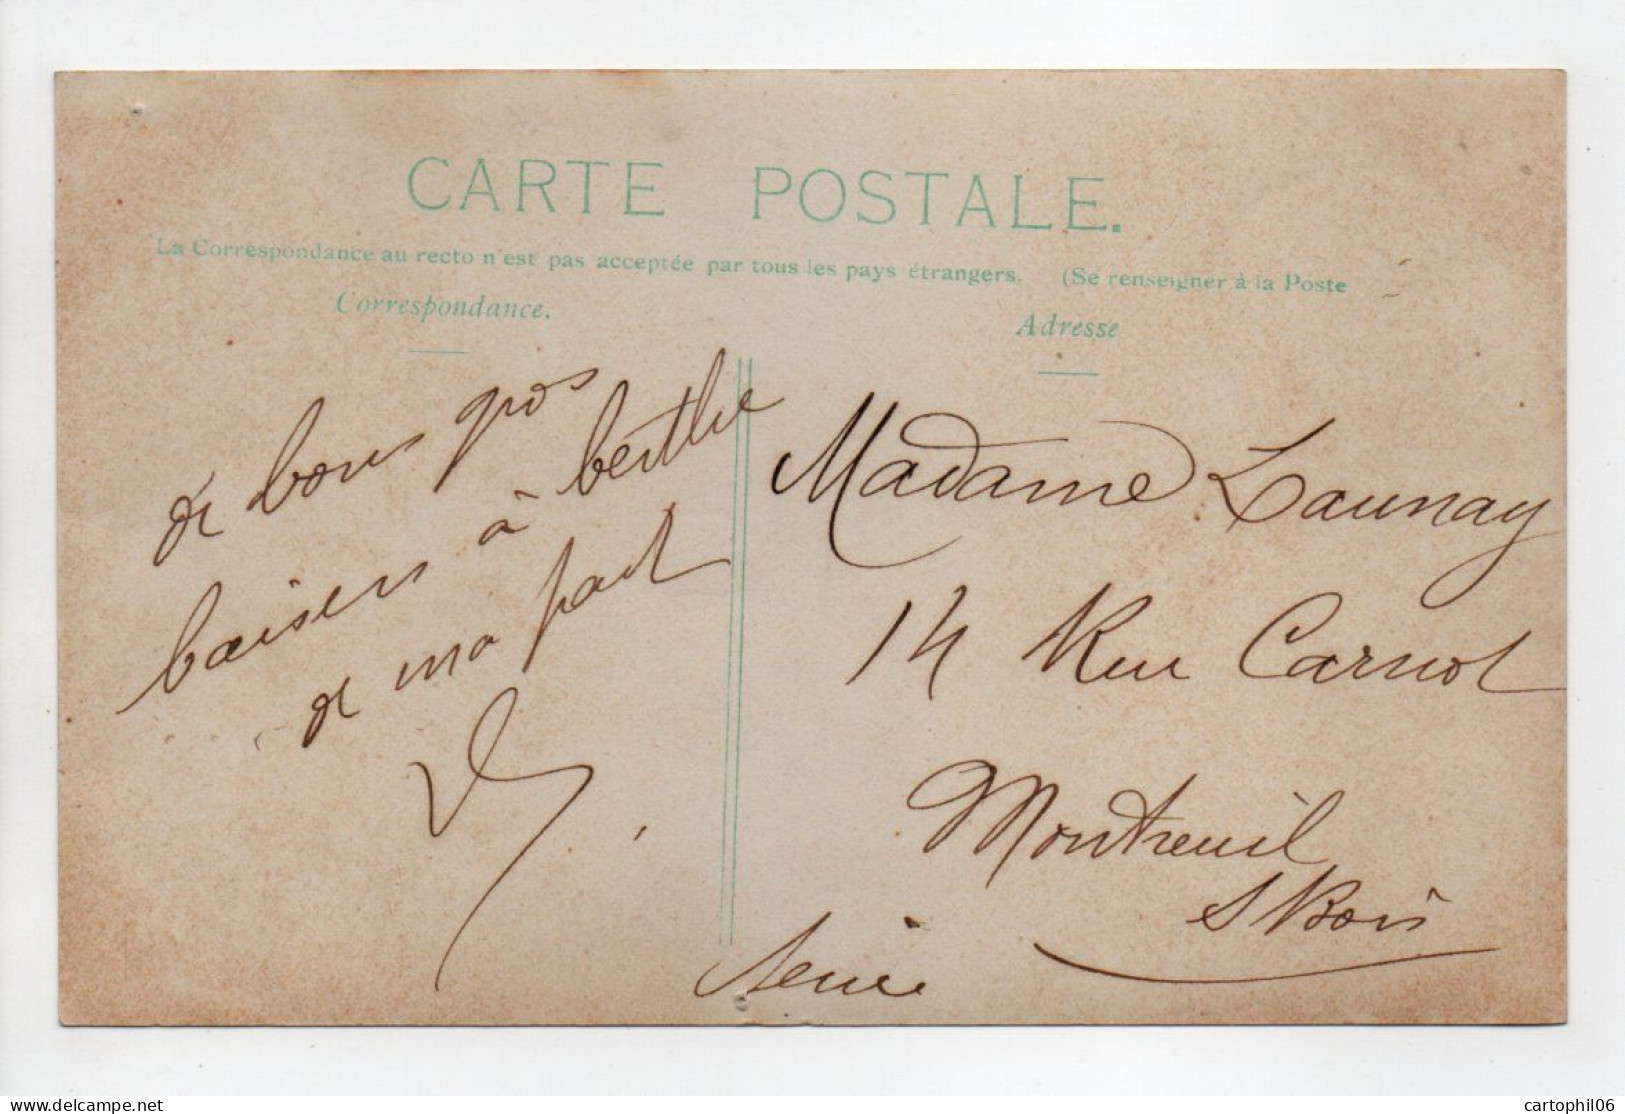 CARTE POSTALE.
La Correspondance au recto n'est pas acceptée par tous les pays étrangers. (Se renseigner à la Poste
Correspondance.
Adresse
de bons gros
baisers à berthe
de ma part
Madame Launay
14 Rue Carnot
Montreuil
s Bois
Seine
cartophil06